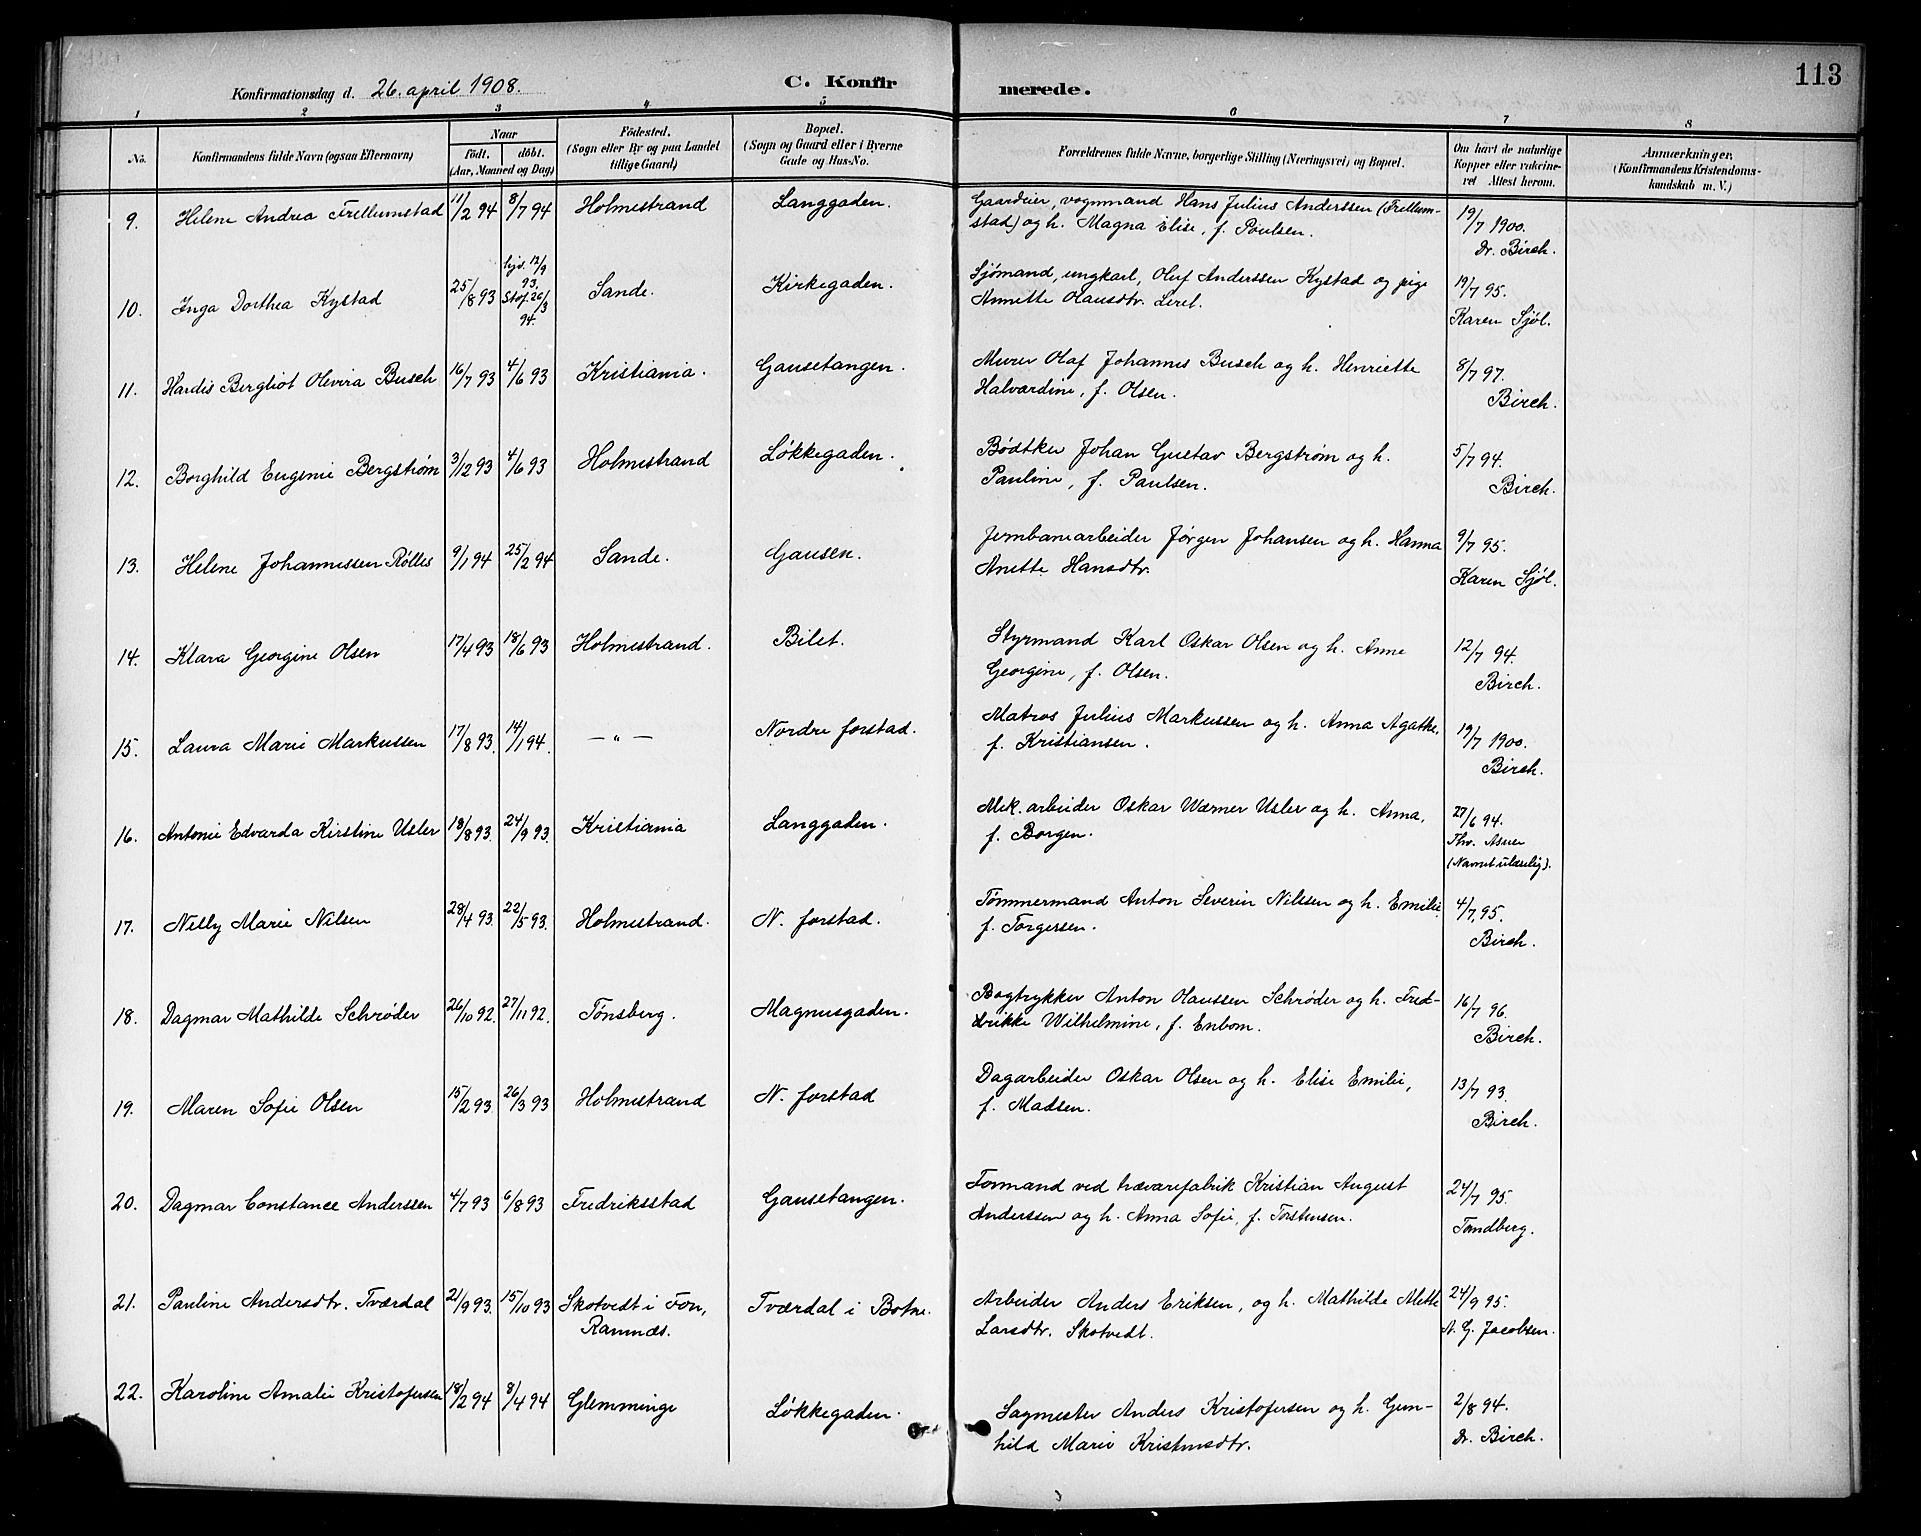 113
Konfirmationsdag d. 26. april 1908.
C. Konfirmerede.
1 2 3 4 5 6 7 8
No.
Konfirmandens fulde Navn (ogsaa Efternavn)
Naar
födt. döbt.
(Aar, Maaned og Dag)
Födested.
(Sogn eller By og paa Landet
tillige Gaard)
Bopæl.
(Sogn og Gaard eller i Byerne
Gade og Hus-No.
Forældrenes fulde Navne, borgerlige Stilling (Næringsvei) og Bopæl.
Om havt de naturlige
Kopper eller vakcine-
ret Attest herom.
Anmærkninger.
(Konfirmandens Kristendoms-
kundskab m. V.)
9. Helene Andrea Trellumstad 11/2 94 8/7 94 Holmestrand Langgaden. Gaardeier, vognmand Hans Julius Anderssen (Trellum-
stad) og h. Magna Elise, f. Poulsen. 19/7 1900.
Dr. Birch.
10. Inga Dorthea Kystad 25/8 93 hjd. 12/9
93.
Staf. 26/3
94. Sande. Kirkegaden. Sjömand, ungkarl, Oluf Anderssen Kystad og pige
Annette Olausdtr. Leret. 19/7 95.
Karen Sjöl.
11. Hardis Bergliot Olevira Busch 16/7 93 4/6 93 Kristiania. Gausetangen. Murer Olaf Johannes Busch og h. Henriette
Halvardine, f. Olsen. 8/7 97.
Birch.
12. Borghild Eugenie Bergstrøm 3/12 93 4/6 93 Holmestrand Løkkegaden. Bødtker Johan Gustav Bergstrøm og h.
Pauline, f. Paulsen. 5/7 94.
Birch.
13. Helene Johannessen Rølles 9/1 94 25/2 94 Sande. Gausen. Jernbanearbeider Jørgen Johansen og h. Hanna
Anette Hansdtr. 9/7 95.
Karen Sjöl.
14. Klara Georgine Olsen 17/4 93 18/6 93 Holmestrand. Bilet. Styrmand Karl Oskar Olsen og h. Anne
Georgine, f. Olsen. 12/7 94.
Birch.
15. Laura Marie Markussen 17/8 93. 14/1 94. — „ — Nordre forstad. Matros Julius Markussen og h. Anna Agathe,
f. Kristiansen. 19/7 1900.
Birch.
16. Antonie Edvarda Kirstine Usler 18/8 93. 24/9 93. Kristiania Langgaden. Mek. arbeider Oskar Wærner Usler og h. Anna,
f. Borgen. 27/6 94.
Thv. Asner
(Navnet ulæselig).
17. Nelly Marie Nilsen 28/4 93. 22/5 93. Holmestrand. N. forstad. Tømmermand Anton Severin Nilsen og h. Emilie
f. Torgersen. 4/7 95.
Birch.
18. Dagmar Mathilde Schrøder 26/10 92. 27/11 92. Tønsberg. Magnusgaden. Bogtrykker Anton Olaussen Schrøder og h. Fred-
rikke Wilhelmine, f. Enbom. 16/7 96.
Birch.
19. Maren Sofie Olsen 15/2 93. 26/3 93 Holmestrand N. forstad Dagarbeider Oskar Olsen og h. Elise Emilie,
f. Madsen. 13/7 93.
Birch.
20. Dagmar Constance Anderssen 4/7 93 6/8 93 Fredriksstad Gausetangen. Formand ved trævarefabrik Kristian August
Anderssen og h. Anna Sofie, f. Torstensen. 24/7 95.
Tandberg.
21. Pauline Andersdtr. Tværdal 21/9 93. 15/10 93 Skotvedt i Fon,
Ramnæs. Tværdal i Botne. Arbeider Anders Eriksen, og h. Mathilde Mette
Larsdtr. Skotvedt. 24/9 95.
A. G. Jacobsen.
22. Karoline Amalie Kristofersen 18/2 94 8/4 94 Glemminge Løkkegaden. Sagmester Anders Kristofersen og h. Gun-
hild Marie Kristensdtr. 2/8 94.
Dr. Birch.